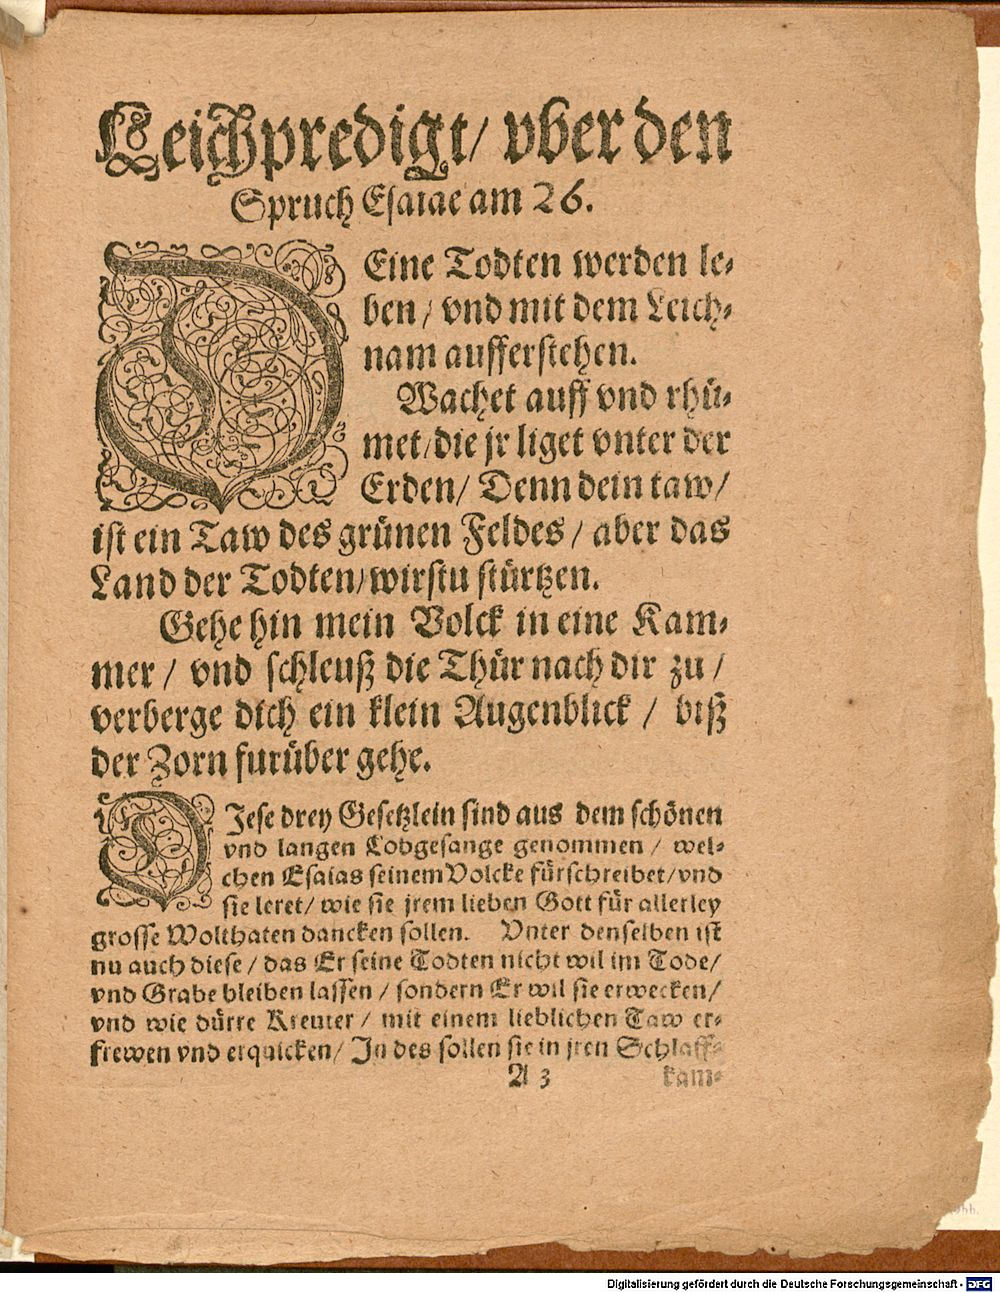 Leichpredigt/ vber den
Spruch Esaiae am 26.
DEine Todten werden le-
ben/ vnd mit dem Leich-
nam aufferstehen.
Wachet auff vnd rhü-
met/die jr liget vnter der
Erden/ Denn dein taw/
ist ein Taw des grünen Feldes/ aber das
Land der Todten/wirstu stürtzen.
Gehe hin mein Volck in eine Kam-
mer/ vnd schleuß die Thür nach dir zu/
verberge dich ein klein Augenblick/ biß
der Zorn furüber gehe.
DIese drey Gesetzlein sind aus dem schönen
vnd langen Lobgesange genommen/ wel-
chen Esaias seinem Volcke fürschreibet/vnd
sie leret/ wie sie jrem lieben Gott für allerley
grosse Wolthaten dancken sollen. Vnter denselben ist
nu auch diese/ das Er seine Todten nicht wil im Tode/
vnd Grabe bleiben lassen/ sondern Er wil sie erwecken/
vnd wie dürre Kreuter/ mit einem lieblichen Taw er-
frewen vnd erquicken/ In des sollen sie in jren Schlaff-
A 3 kam-
Digitalisierung gefördert durch die Deutsche Forschungsgemeinschaft - DFG